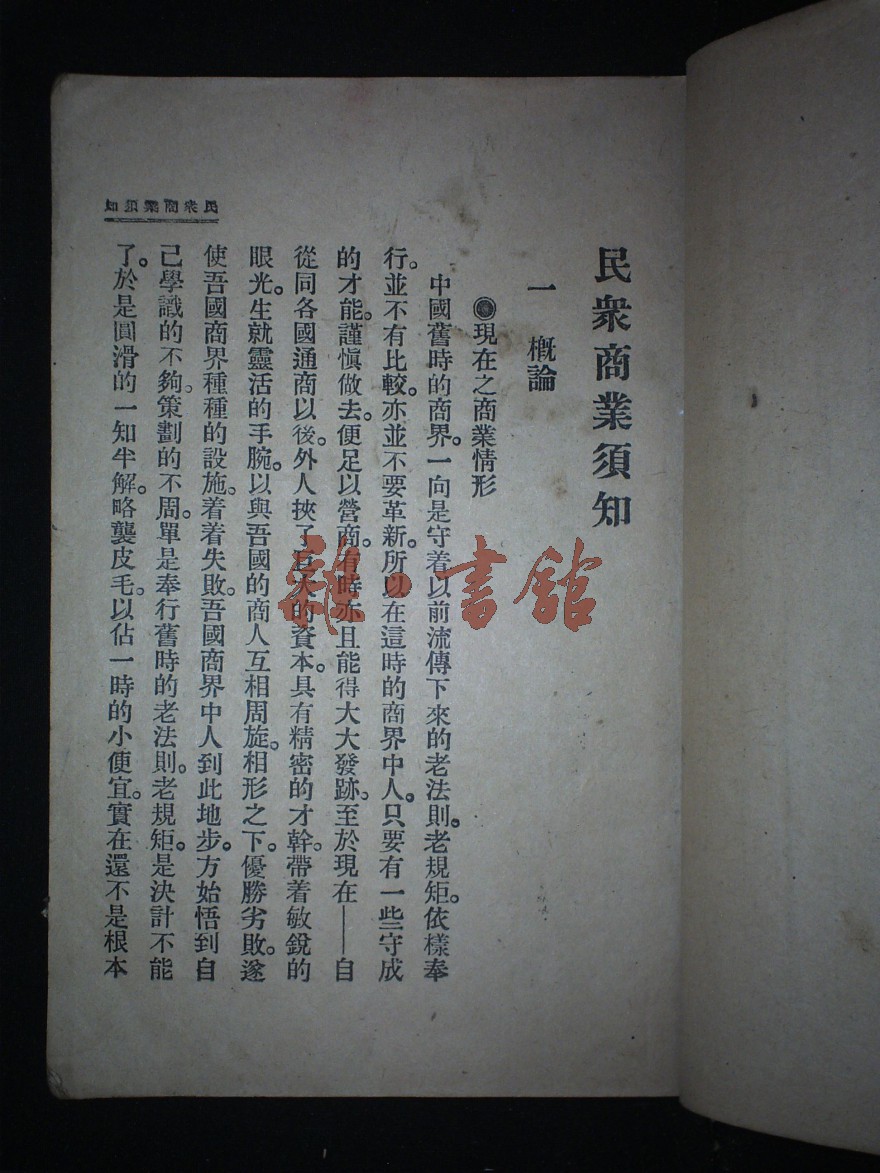 民衆商業須知
一 概論
◉現在之商業情形
中國舊時的商界。一向是守着以前流傳下來的老法則。老規矩。依樣奉
行。並不有比較。亦並不要革新。所以在這時的商界中人。只要有一些守成
的才能。謹愼做去。便足以營商。有時亦且能得大大發跡。至於現在——自
從同各國通商以後。外人挾了巨大的資本。具有精密的才幹。帶着敏銳的
眼光。生就靈活的手腕。以與吾國的商人互相周旋。相形之下。優勝劣敗。遂
使吾國商界種種的設施。着着失敗。吾國商界中人到此地步。方始悟到自
己學識的不夠。策劃的不周。單是奉行舊時的老法則。老規矩。是決計不能
了。於是圓滑的一知半解。略襲皮毛。以佔一時的小便宜。實在還不是根本
民衆商業須知
雜·書館